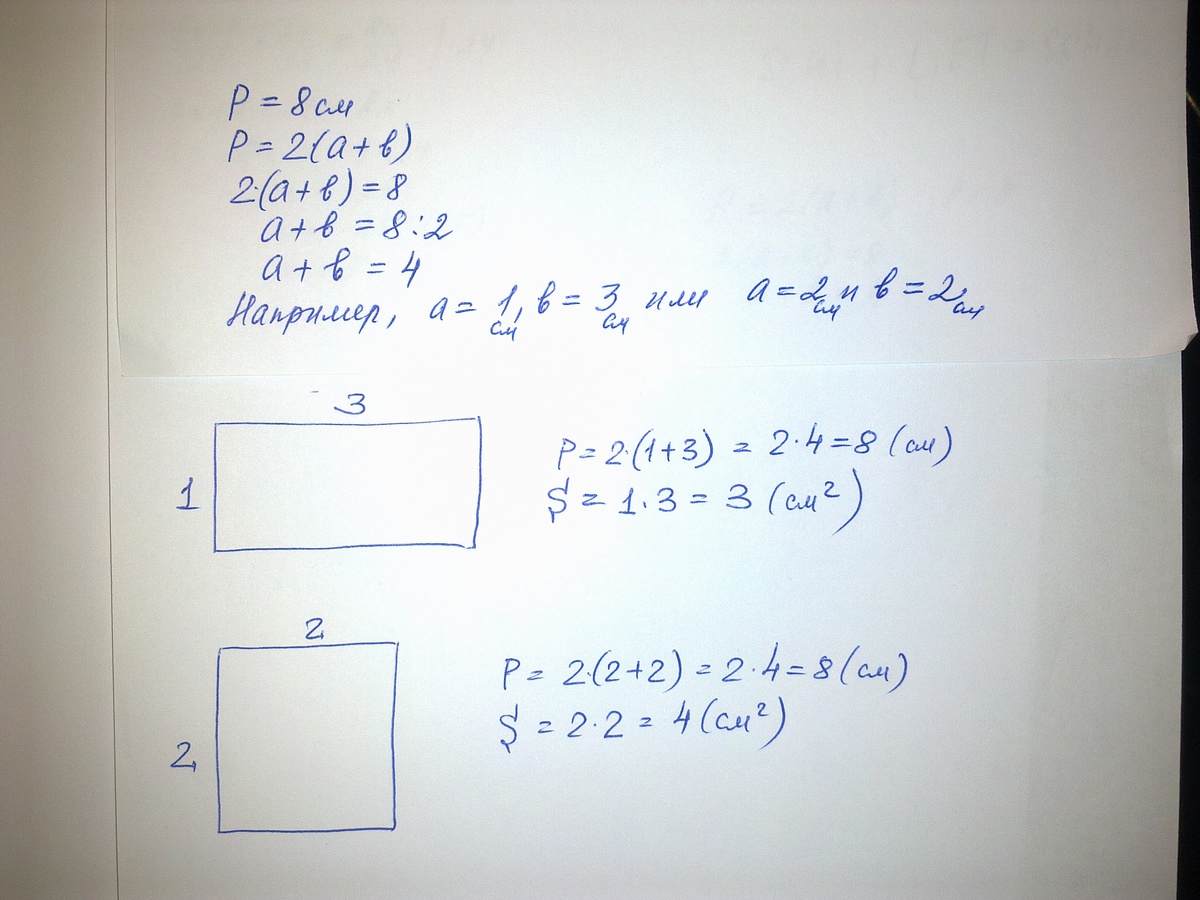 P = 8 см
P = 2(a + в)
2·(a + в) = 8
a + в = 8 : 2
a + в = 4
Например, a = 1 см, в = 3 см или a = 2 см и в = 2 см
3
1
P = 2·(1+3) = 2·4 = 8 (см)
S = 1·3 = 3 (см²)
2
2
P = 2·(2+2) = 2·4 = 8 (см)
S = 2·2 = 4 (см²)